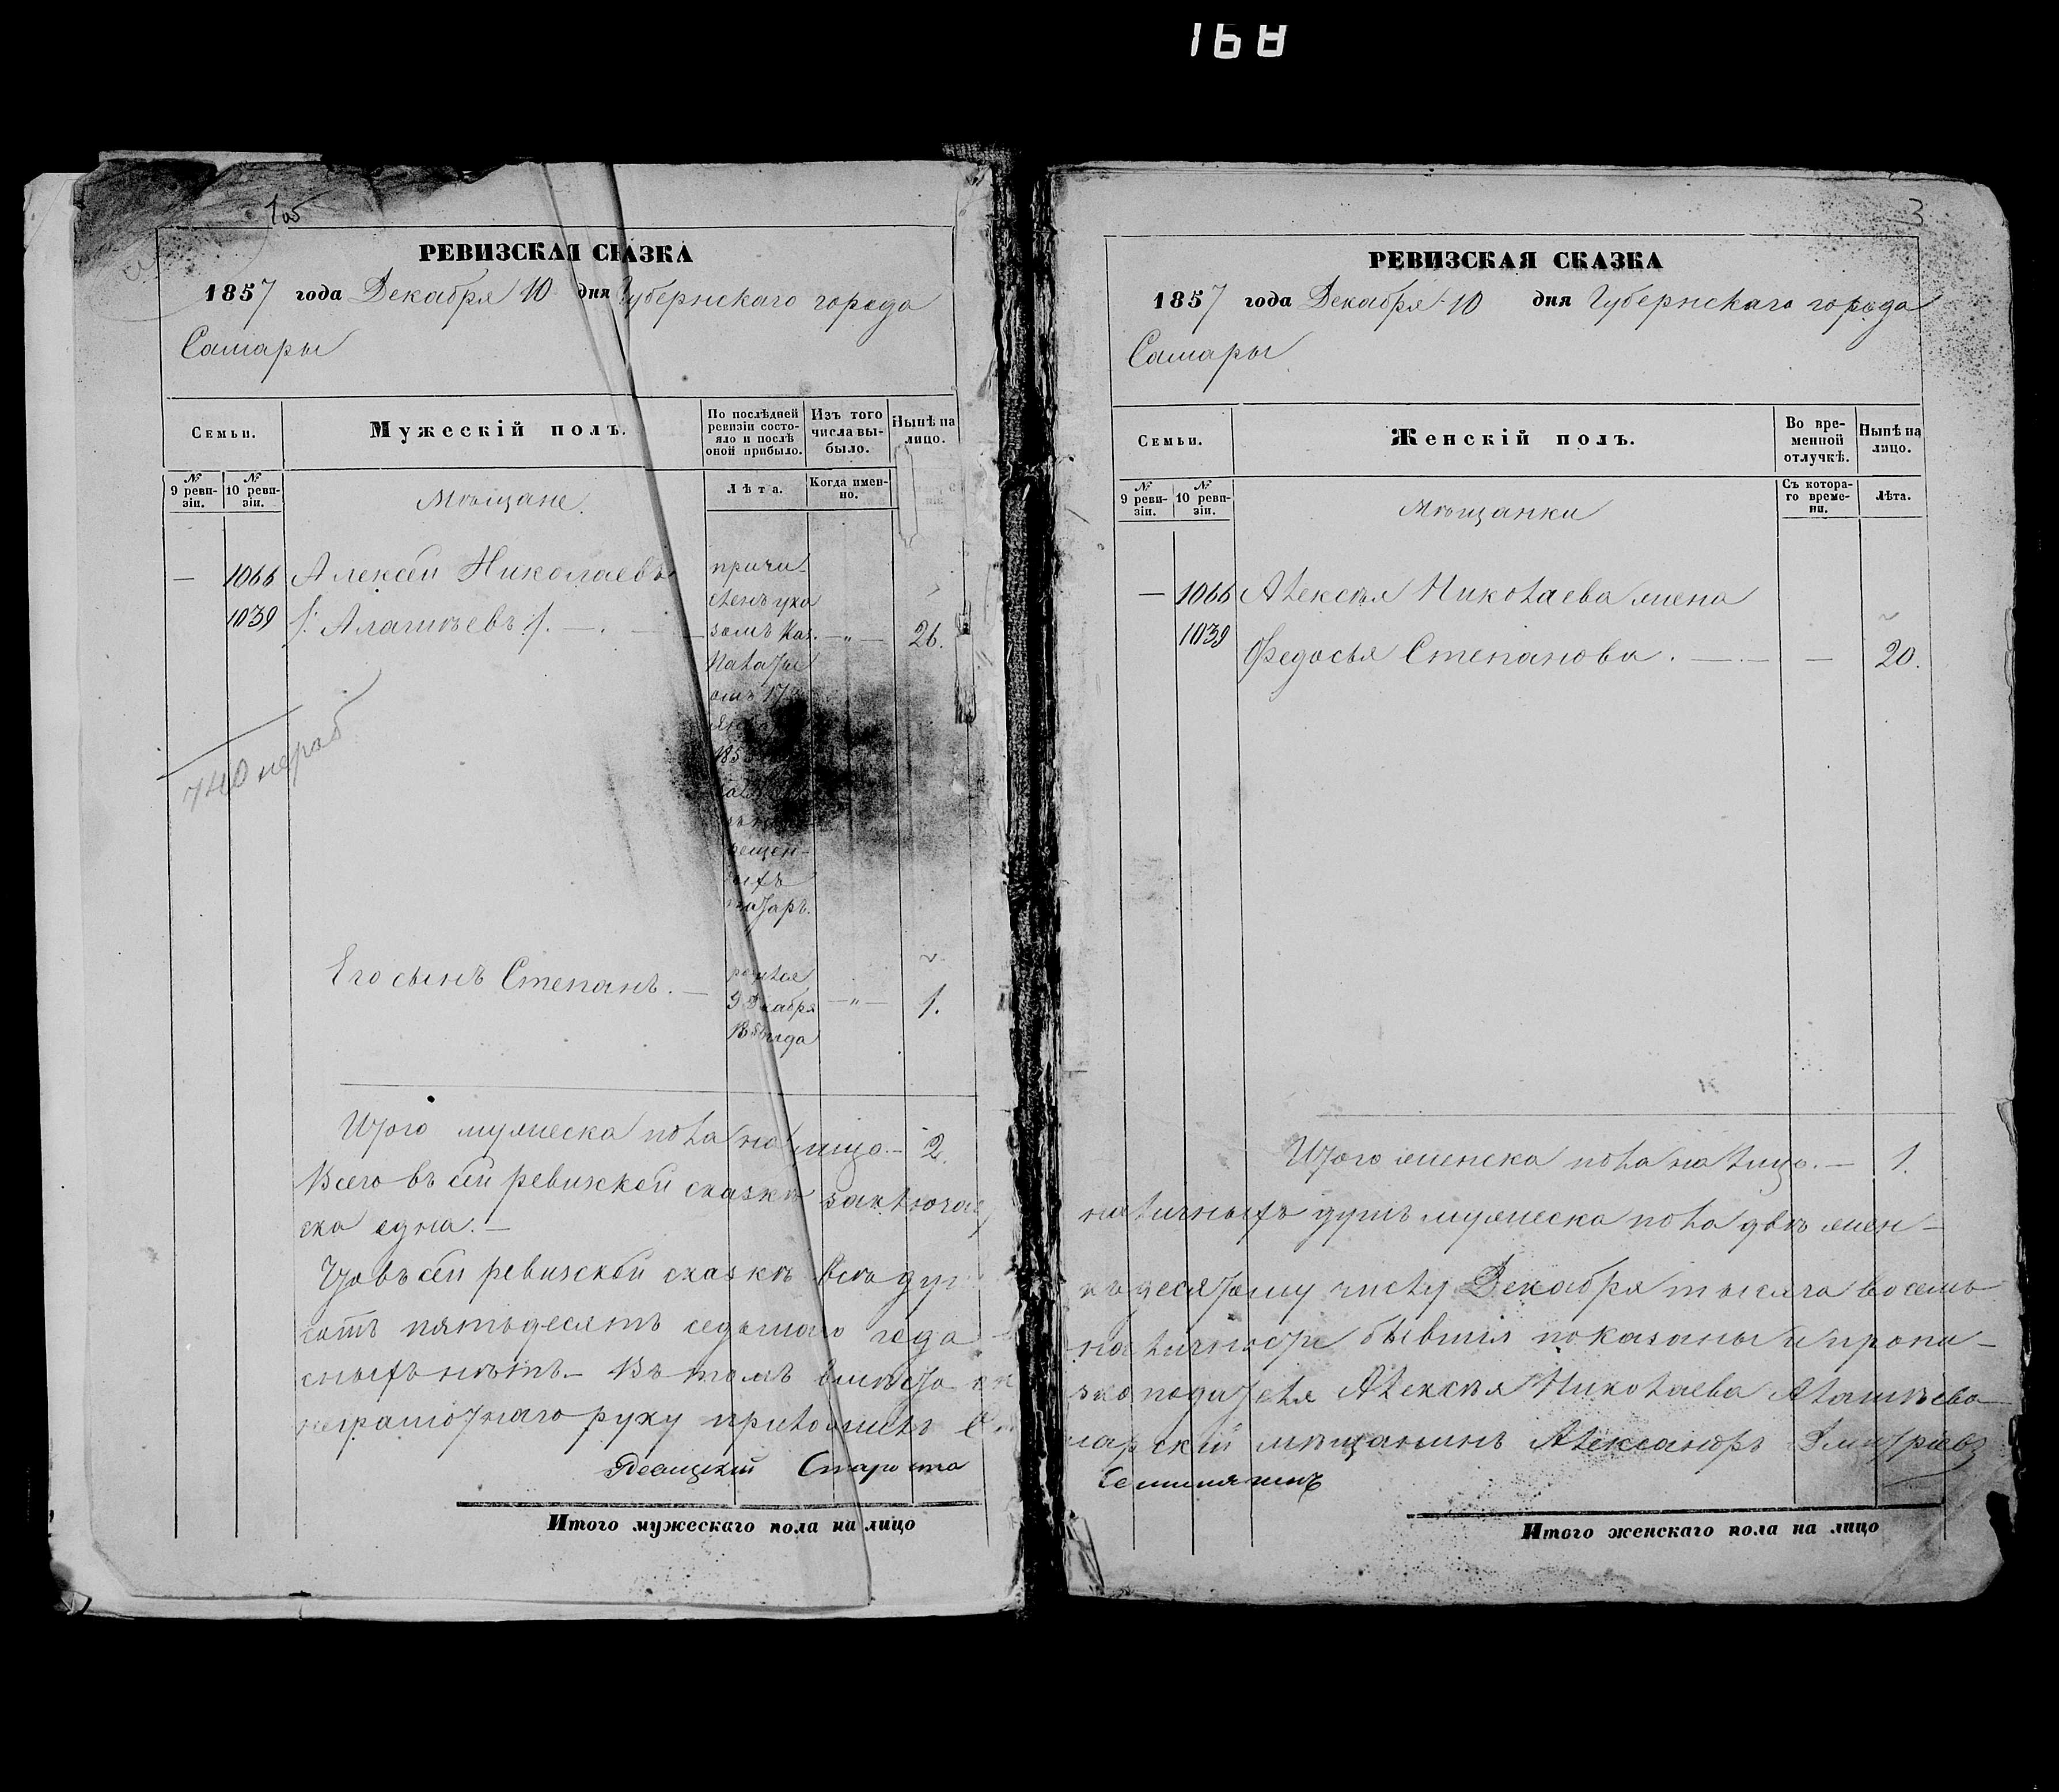 168
1об
РЕВИЗСКАЯ СКАЗКА
1857 года Декабря 10 дня Губернскаго города
Самары
Семьи.
Мужескій полъ.
По послѣдней ревизіи состояло и послѣ оной прибыло.
Изъ того числа выбыло.
Нынѣ на лицо.
№ 9 ревизіи.
№ 10 ревизіи.
Мѣщане.
Лѣта.
Когда именно.
— 1066 Алексѣй Николаевъ
1039 /: Алашѣевъ :/. — . — —
причи-
сленъ ука
зомъ Каз. — „ — 26.
Палаты
отъ 17
185
ещен-
ыхъ
татаръ.
740 нераб
Его сынъ Степанъ. —
родился
9 Декабря — „ — 1.
года
Итого мужеска пола на лицо. — 2.
Всего въ сей ревизской сказкѣ заключае
ска одна. —
Что въ сей ревизской сказкѣ всѣ ду
сотъ пятьдесятъ седьмаго года
сныхъ нѣтъ. — Въ томъ вмѣсто
неграмотнаго руку приложилъ
Староста
Итого мужескаго пола на лицо
3
РЕВИЗСКАЯ СКАЗКА
1857 года Декабря 10 дня Губернскаго города
Самары
Семьи.
Женскій полъ.
Во временной отлучкѣ.
Нынѣ на лицо.
№ 9 ревизіи.
№ 10 ревизіи.
Мѣщанки
Съ котораго времени.
Лѣта.
— 1066 Алексѣя Николаева жена
1039 Федосья Степанова . — . — — 20.
Итого женска пола на лицо. — 1.
наличныхъ душъ мужеска пола двѣ жен-
къ десятому числу Декабря тысяча восемь
на личность бывшія показаны и пропи-
подателя Алексѣя Николаева Алашѣева
марскій мѣщанинъ Александръ Дмитріевъ
Итого женскаго пола на лицо